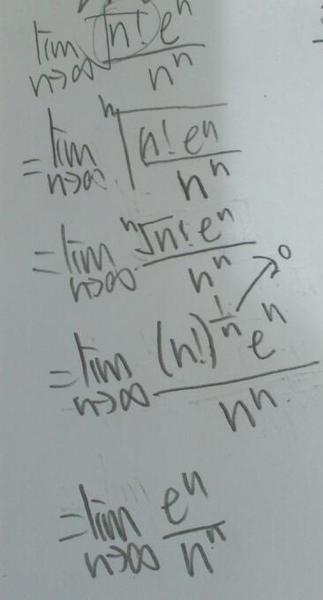 lim n→∞ √n! eⁿ / nⁿ
= lim n→∞ ⁿ√(n! eⁿ / nⁿ)
= lim n→∞ ⁿ√n! eⁿ / nⁿ
= lim n→∞ (n!)^(1/n) → 0 eⁿ / nⁿ
= lim n→∞ eⁿ / nⁿ